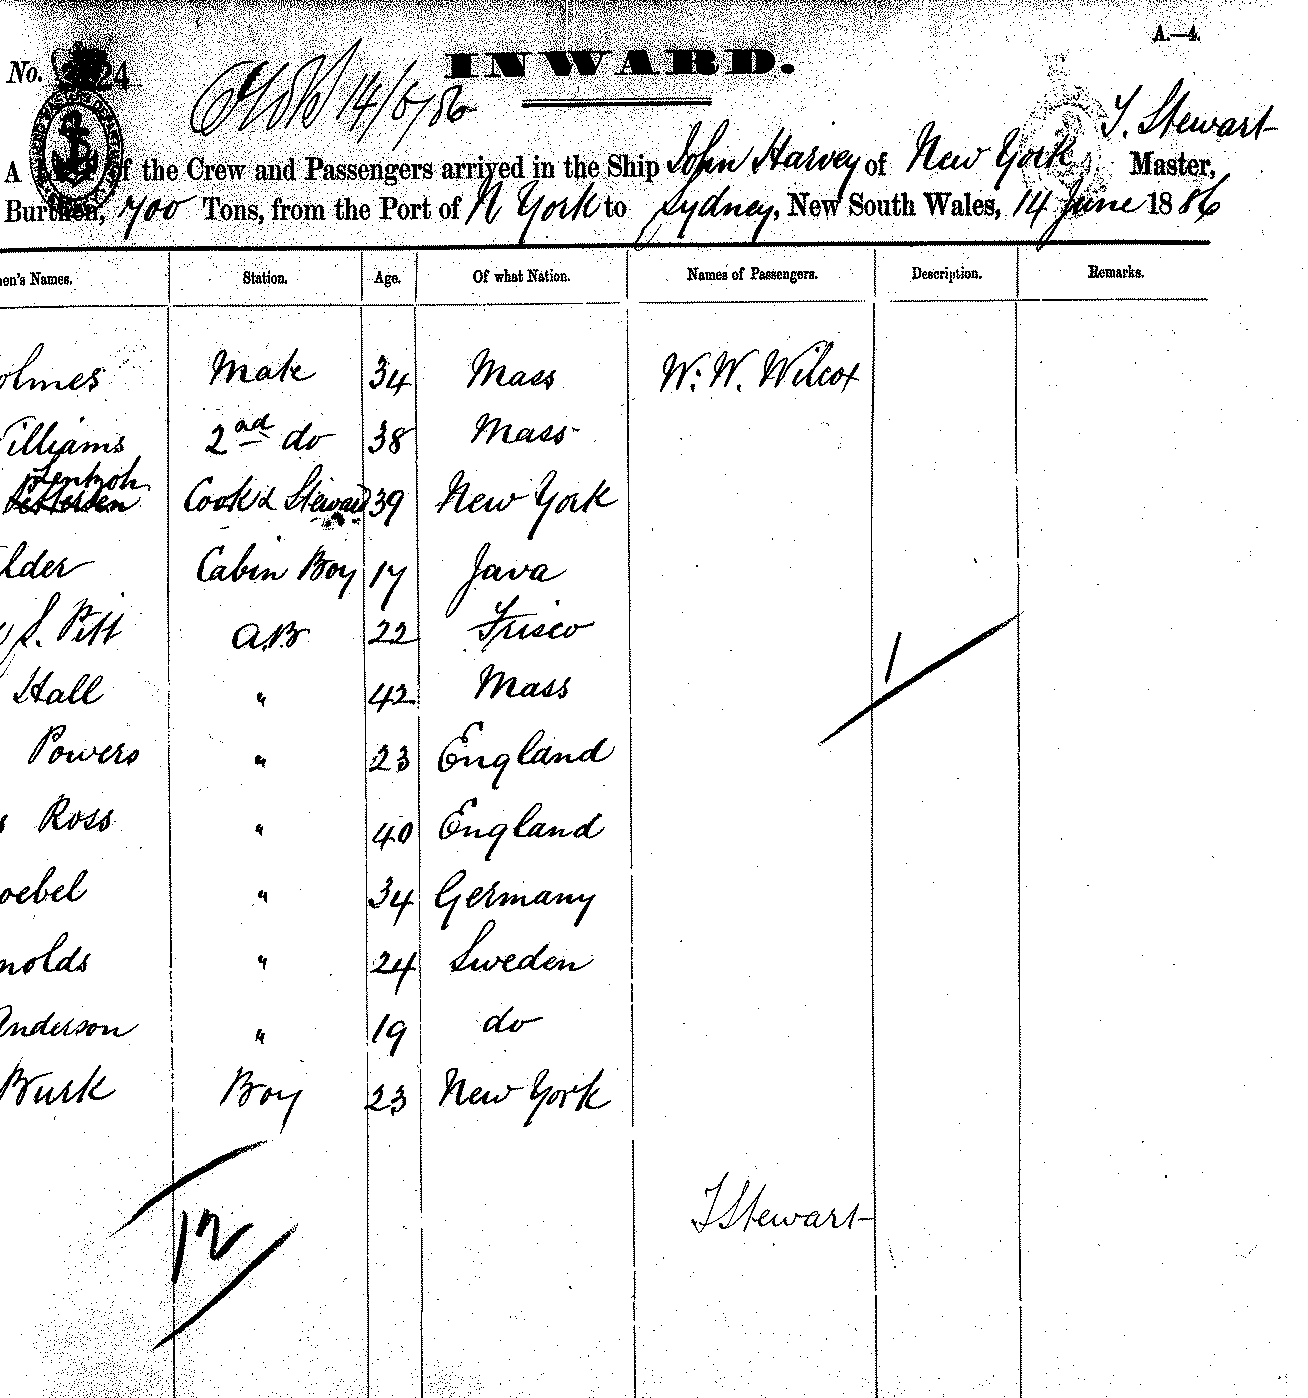 A.—4.
No. 24 14/6/86 INWARD.
T. Stewart
A of the Crew and Passengers arrived in the Ship John Harvey of New York Master,
Burthen, 700 Tons, from the Port of N York to Sydney, New South Wales, 14 June 1886
en's Names. Station. Age. Of what Nation. Names of Passengers. Description. Remarks.
olmes Mate 34 Mass W. W. Wilcox
Williams 2nd do 38 Mass
Cook & Steward 39 New York
lder Cabin Boy 17 Java
S. Pitt A.B 22 Frisco
1
Hall " 42 Mass
Powers " 23 England
s Ross " 40 England
oebel " 34 Germany
nolds " 24 Sweden
Anderson " 19 do
Burk Boy 23 New York
T Stewart
12